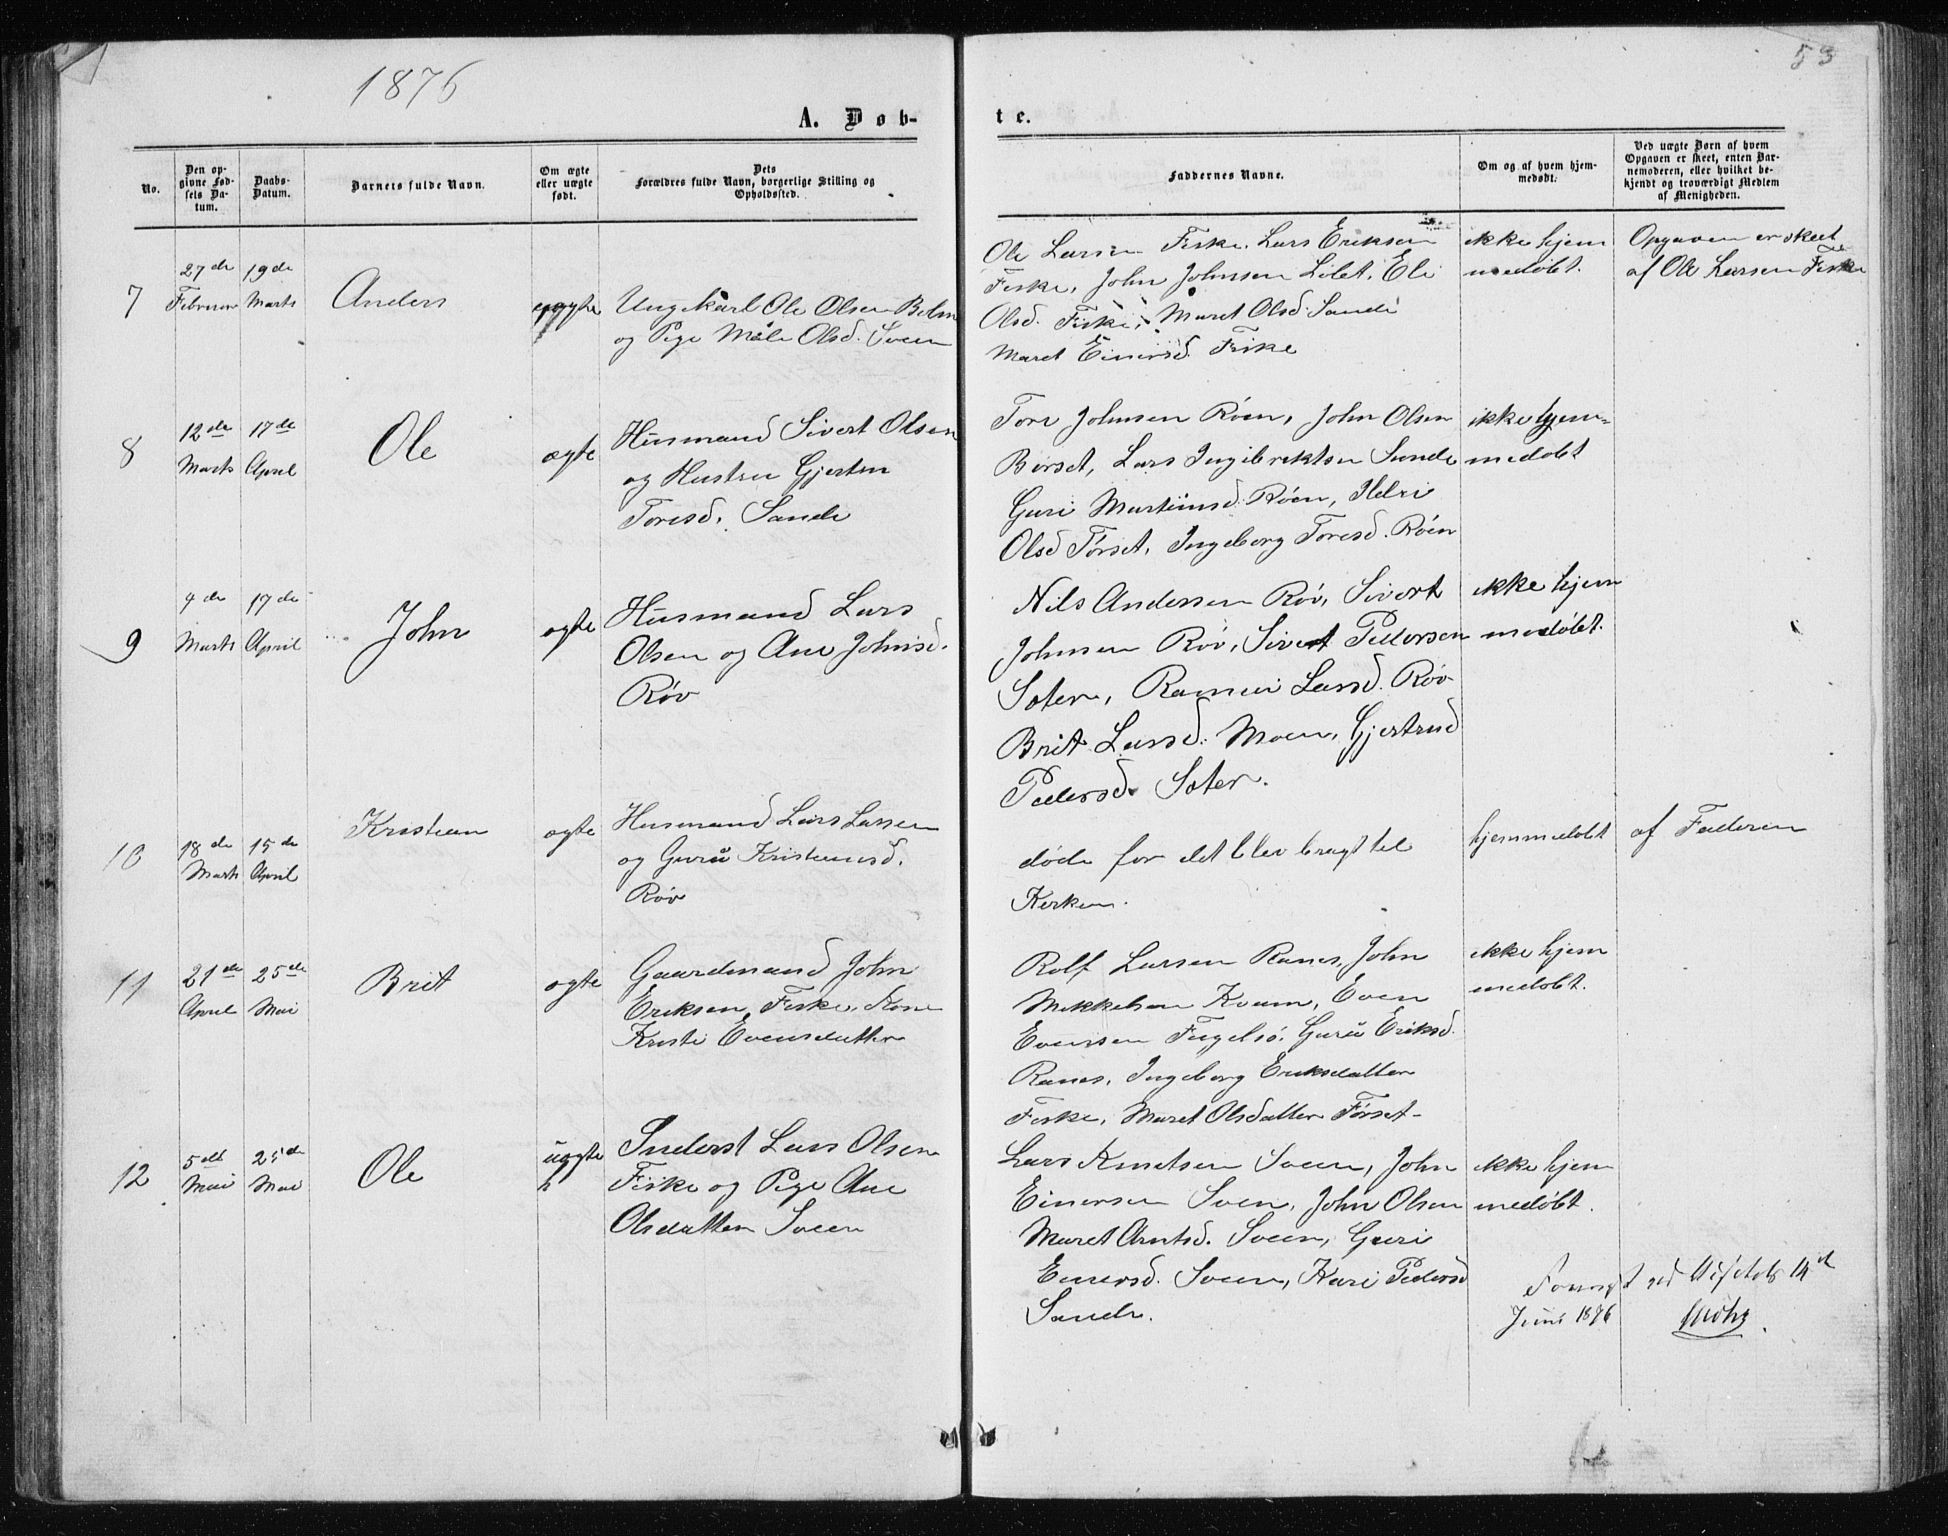 1876
53
A. Døb-
te.
No.
Den opgivne Fødsels Datum.
Daabs-Datum.
Barnets fulde Navn.
Om ægte eller uægte født.
Dets Forældres fulde Navn, borgerlige Stilling og Opholdssted.
Faddernes Navne.
Om og af hvem hjemmedøbt.
Ved uægte Børn af hvem Opgaven er skeet, enten Barnemoderen, eller hvilket bekjendt og troværdigt Medlem af Menigheden.
7
27de Februar
19de Marts
Anders
Ungekarl Ole Olsen
og Pige Måle Olsd. Sveen
Ole Larsen Fiske, Lars Eriksen
Fiske, John Johnsen Løset, Eli
Olsd. Fiske, Maret Olsd. Sande
Maret Einersd. Fiske
ikke hjem
medøbt.
Opgaven er skeet
af Ole Larsen Fiske
8
12de Marts
17de April
Ole
ægte
Husmand Sivert Olsen
og Hustru Gjertru
Toresd. Sande
Tore Johnsen Röen, John Olsen
Børset, Lars Ingebriktsen Sande
Guri Martinusd. Röen,
Olsd Førset, Ingeborg Toresd. Röen
ikke hjem-
medøbt
9
4de Marts
17de April
John
ægte
Husmand Lars
Olsen og Ane Johnsd.
Røv
Nils Andersen Røv, Sivert
Johnsen Røv, Sivert Pedersen
Søter, Larsd. Røv
Brit Larsd. Moen, Gjertrud
Pedersd. Søter.
ikke hjem
medøbt.
10
18de Marts
15de April
Kristian
ægte
Husmand Lars Larsen
og Guru Kristiansd.
Røv
døde før det blev bragt til
Kirken.
hjemmedøbt
af Faderen
11
21de April
25de Mai
Brit
ægte
Gaardmand John
Eriksen Fiske, Kone
Kristi Evensdatter
Rolf Larsen Ranes, John
Mikkelsen Kvam, Even
Evensen Fugelsø, Guru Eriksd.
Ranes, Ingeborg Eriksdatter
Fiske, Maret Olsdatter Førset
ikke hjem
medøbt.
12
5te Mai
25de Mai
Ole
uægte
Inderst Lars Olsen
Fiske og Pige Ane
Olsdatter Sveen
Lars Knutsen Sveen, John
Einersen Svein, John Olsen
Maret Arntsd. Svein, Guri
Einersd. Svein, Kari Pedersd
Sande.
ikke hjem
medøbt.
14d
Juni 1876